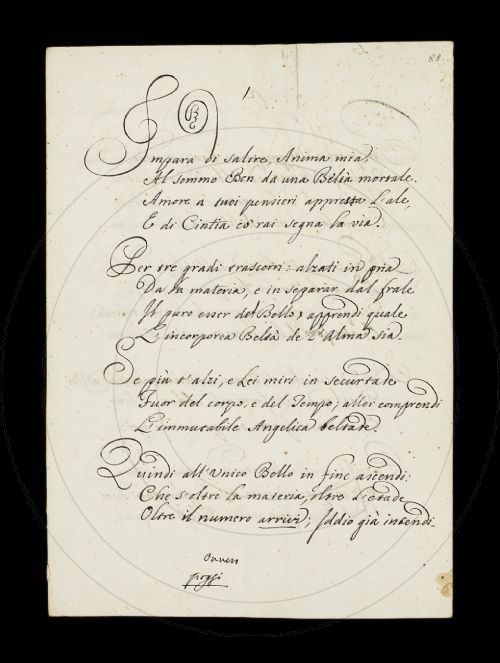 88
1
Impara di salire, Anima mia,
Al sommo Ben da una Beltà mortale.
Amore a tuoi pensieri appresta L'ale,
E di Cintia co' rai segna la via.
Per tre gradi trascorri: alzati in pria
Da la materia, e in separar dal frale
Il puro esser del Bello, apprendi quale
L'incorporea Beltà de L'Alma sia.
Se più t'alzi, e Lei miri in securtate
Fuor del corpo, e del Tempo; allor comprendi
L'immutabile Angelica beltate.
Quindi all'Unico Bello in fine ascendi:
Che s'oltre la materia, oltre L'etade
Oltre il numero arrivi; Iddio già intendi.